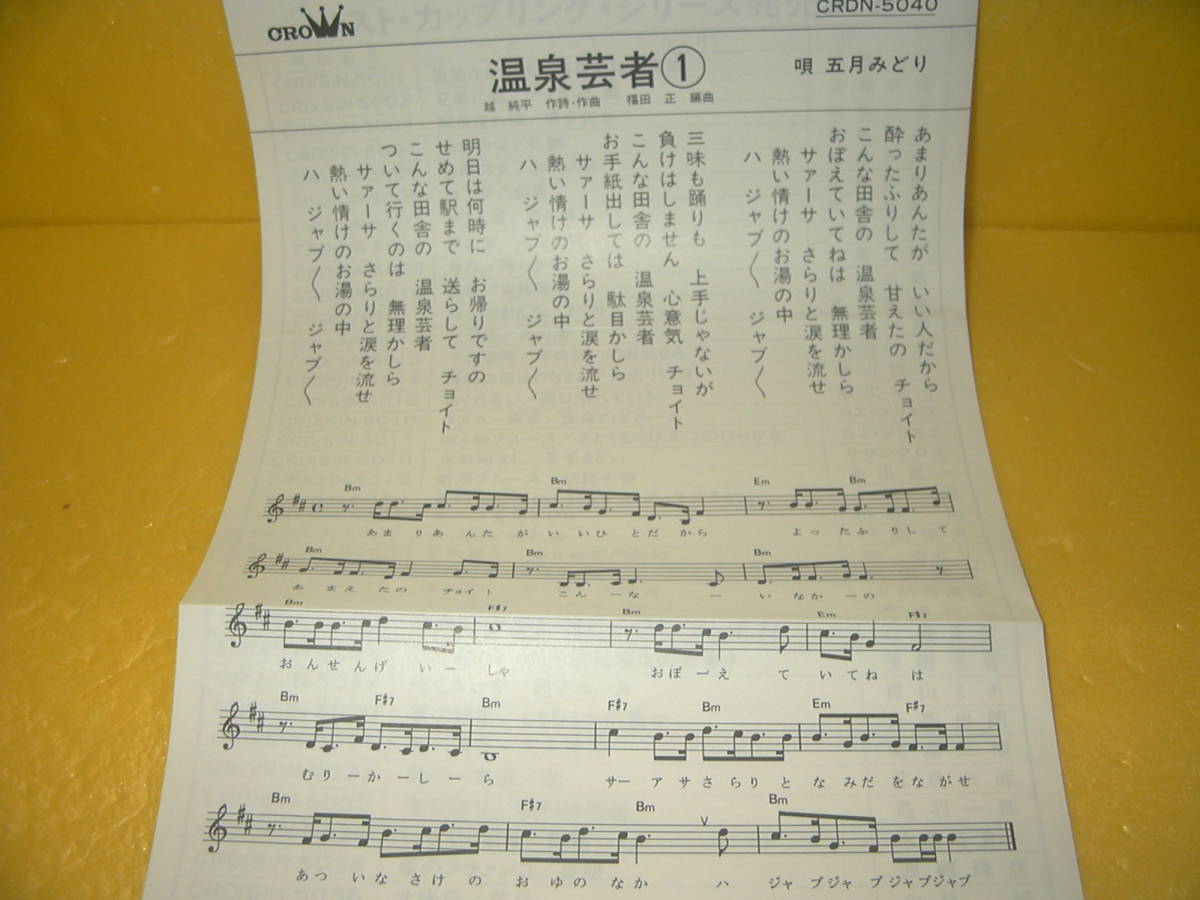 CROWN
CRDN-5040
温泉芸者①
唄 五月みどり
越 純平 作詩・作曲 福田 正 編曲
あまりあんたが いい人だから
酔ったふりして 甘えたの チョイト
こんな田舎の 温泉芸者
おぼえていてねは 無理かしら
サァーサ さらりと涙を流せ
熱い情けのお湯の中
ハ ジャブ〱 ジャブ〱
三味も踊りも 上手じゃないが
負けはしません 心意気 チョイト
こんな田舎の 温泉芸者
お手紙出しては 駄目かしら
サァーサ さらりと涙を流せ
熱い情けのお湯の中
ハ ジャブ〱 ジャブ〱
明日は何時に お帰りですの
せめて駅まで 送らして チョイト
こんな田舎の 温泉芸者
ついて行くのは 無理かしら
サァーサ さらりと涙を流せ
熱い情けのお湯の中
ハ ジャブ〱 ジャブ〱
Bm Bm Em Bm
あまりあんたが いいひとだから よったふりして
Bm Bm Bm
あまえたの チョイト こんーなー いなかーの
Bm F#7 Bm Em F#7
おんせんげいーしゃ おぼーえ ていてねは
Bm F#7 Bm F#7 Bm Em F#7
むりーかーしーら サーアサさらりと なみだをながせ
Bm F#7 Bm Bm
あついなさけの おゆのなか ハ ジャブジャブジャブジャブ